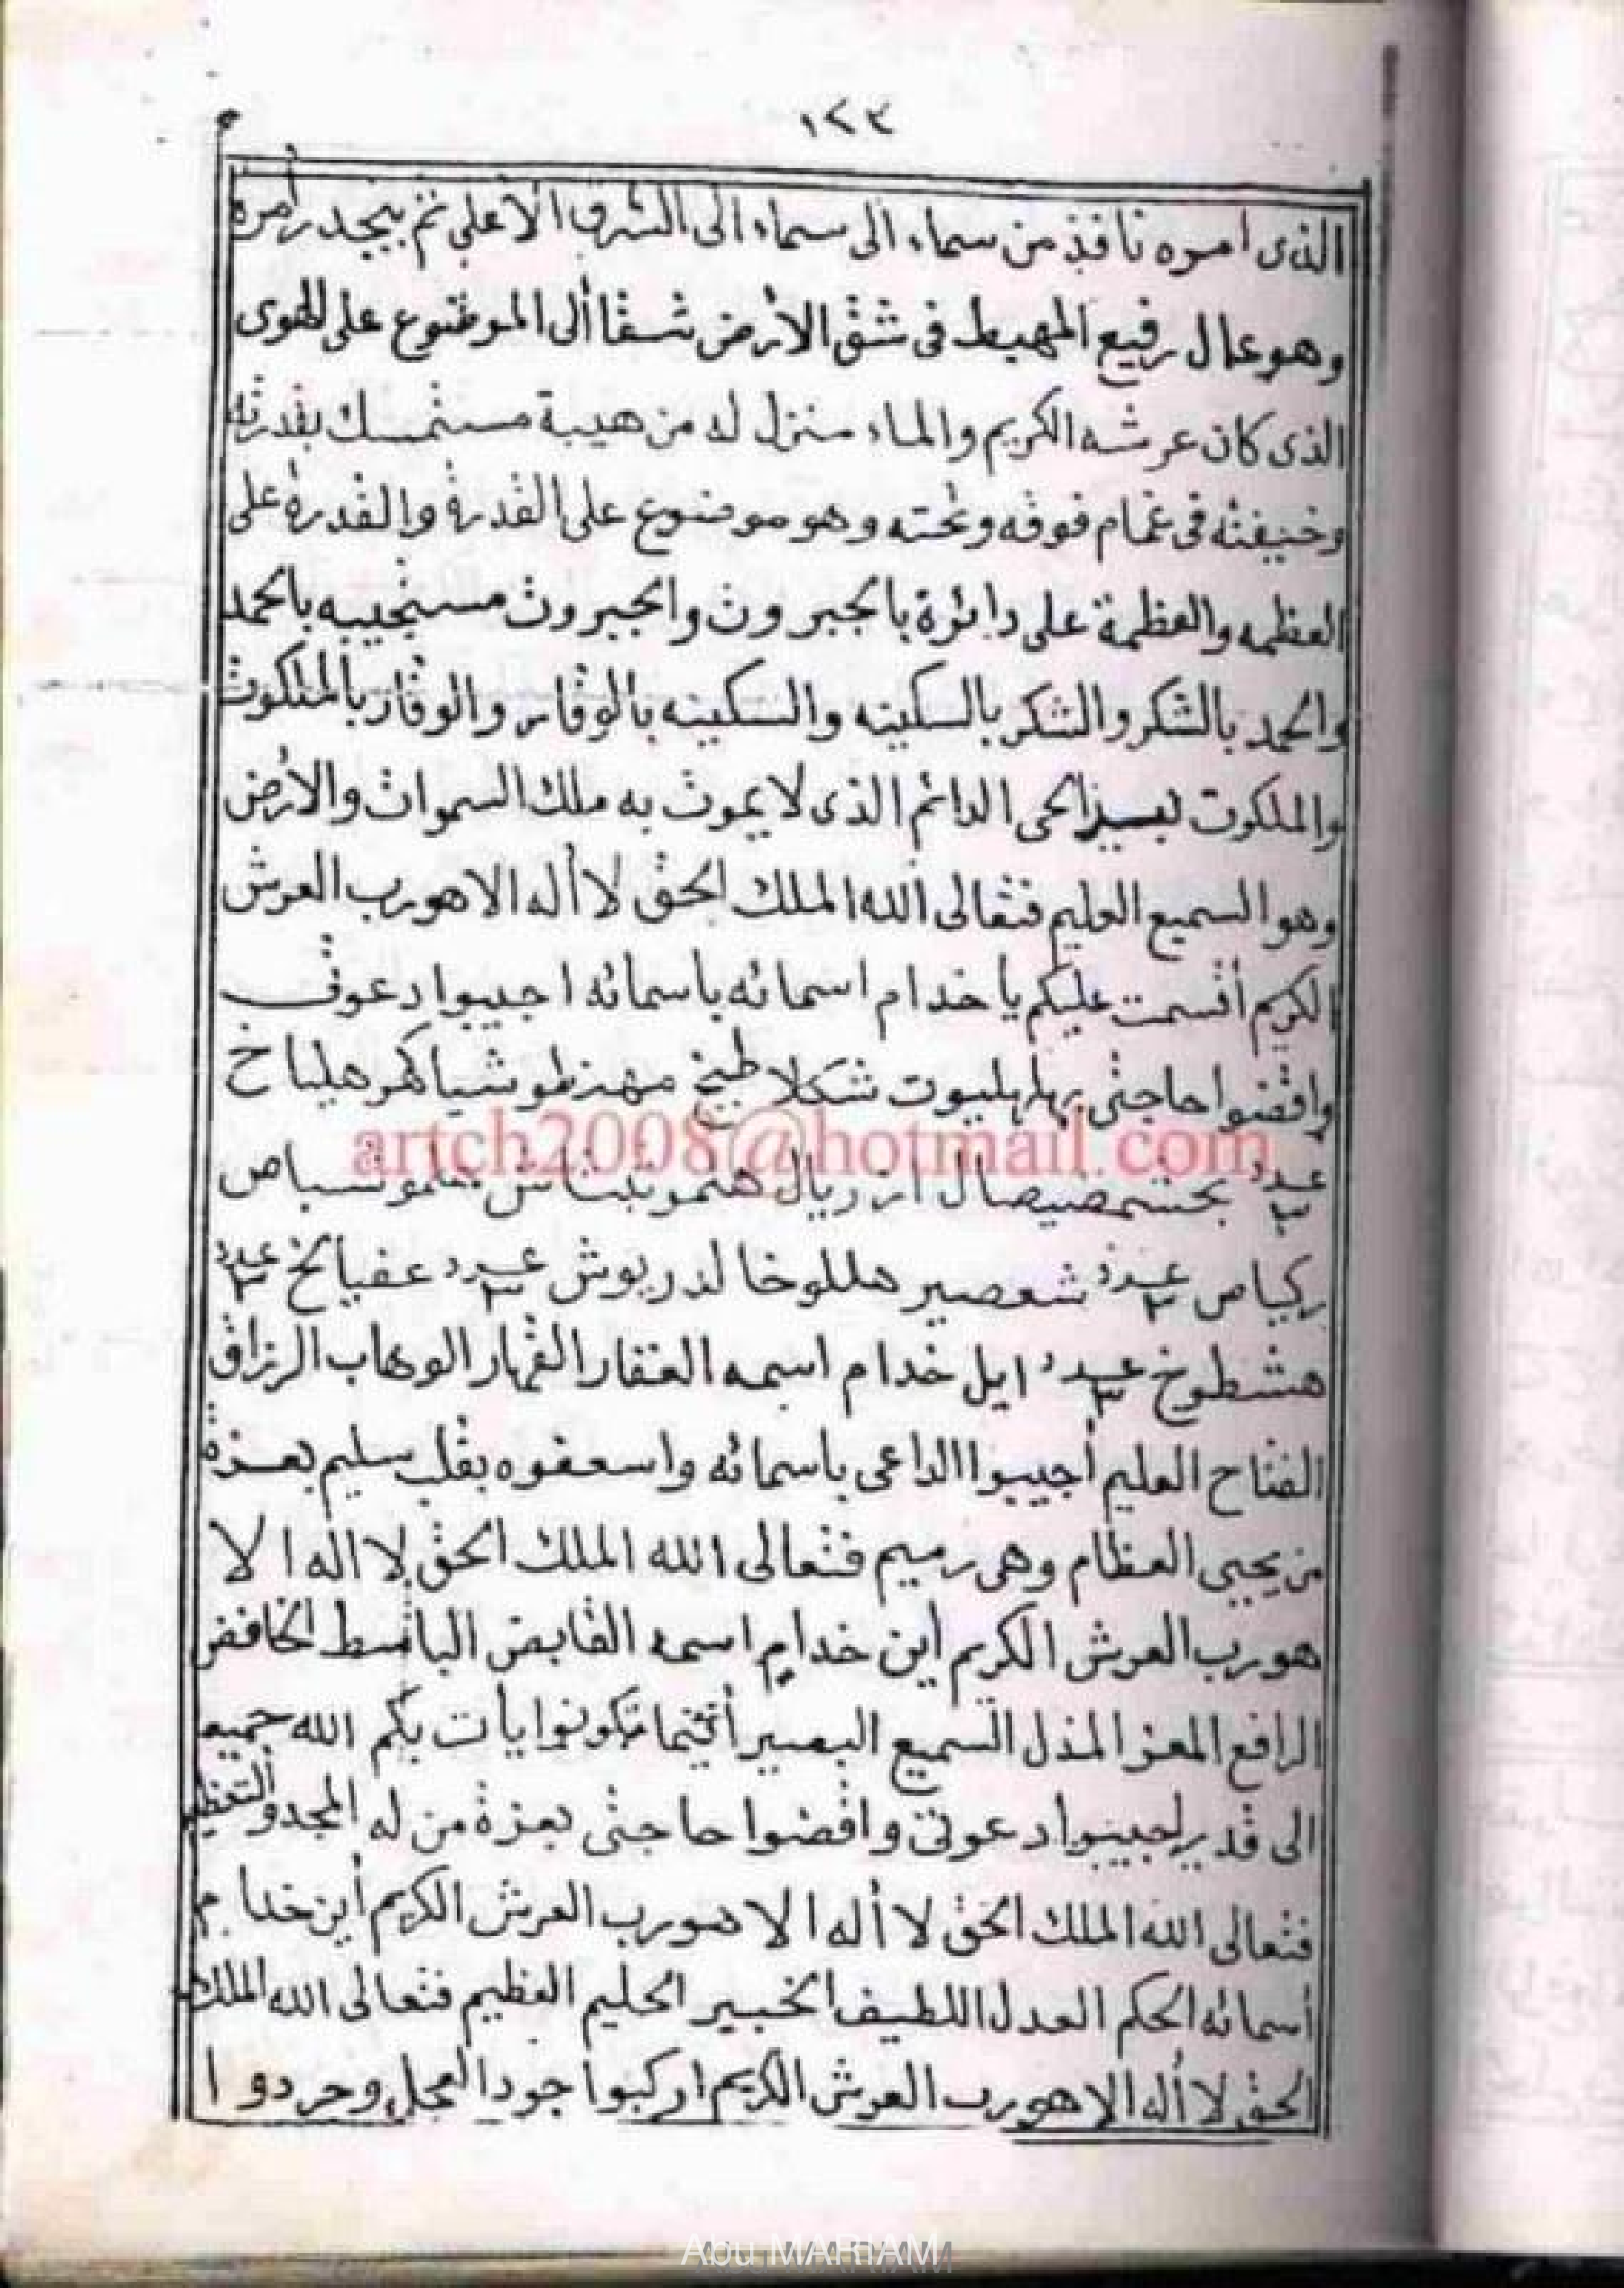 ١٢٣
الذى امره نافذ من سماء الى سماء الى الشرق الاعلى ثم ينجد رأمره
وهو عال رفيع المهبط فى شق الأرض شقا ألى الموضوع على الهوى
الذى كان عرشه الكريم والماء منزل له من هيبة مستمسك بقدرته
وخيفته فى غمام فوقه وتحته وهو موضوع على القدرة والقدرة على
العظمه والعظمة على دائرة بالجبروت والجبروت مستجيبه بالحمد
والحمد بالشكر والشكر بالسكينه والسكينه بالوقار والوقار بالملكوت
والملكوت الحى الدائم الذى لا يموت به ملك السموات والأرض
وهو السميع العليم فتعالى الله الملك الحق لا أله الا هو رب العرش
الكريم أقسمت عليكم يا خدام اسمائه باسمائه اجيبوا دعوتى
واقضوا حاجتى بهلهليوت شكلا طيخ مهنز طوشيا كر هلياخ
artch2008@hotmail.com
عدد ٢ ازريال
ركياص عدد ٣ شعصير هللوخا لدريوش عدد ٣ عفيايخ عدد ٣
هشطوخ عدد ٣ ايل خدام اسمه الغفار القهار الوهاب الرزاق
الفتاح العليم أجيبوا الداعى باسمائه واسعفوه بقلب سليم بعزة
من يحيى العظام وهى رميم فتعالى الله الملك الحق لا اله الا
هو رب العرش الكريم أين خدام اسمه القابض الباسط الخافض
الرافع المعز المذل السميع البصير أينما تكونوا يأت بكم الله جميعا
الى قدير اجيبوا دعوتى واقضوا حاجتى بعزة من له المجد والتعظيم
فتعالى الله الملك الحق لا أله الا هو رب العرش الكريم أين خدام
أسمائه الحكم العدل اللطيف الخبير الحليم العظيم فتعالى الله الملك
الحق لا أله الا هو رب العرش الكريم اركبوا جود العجل وجردوا
Abu MARIAM